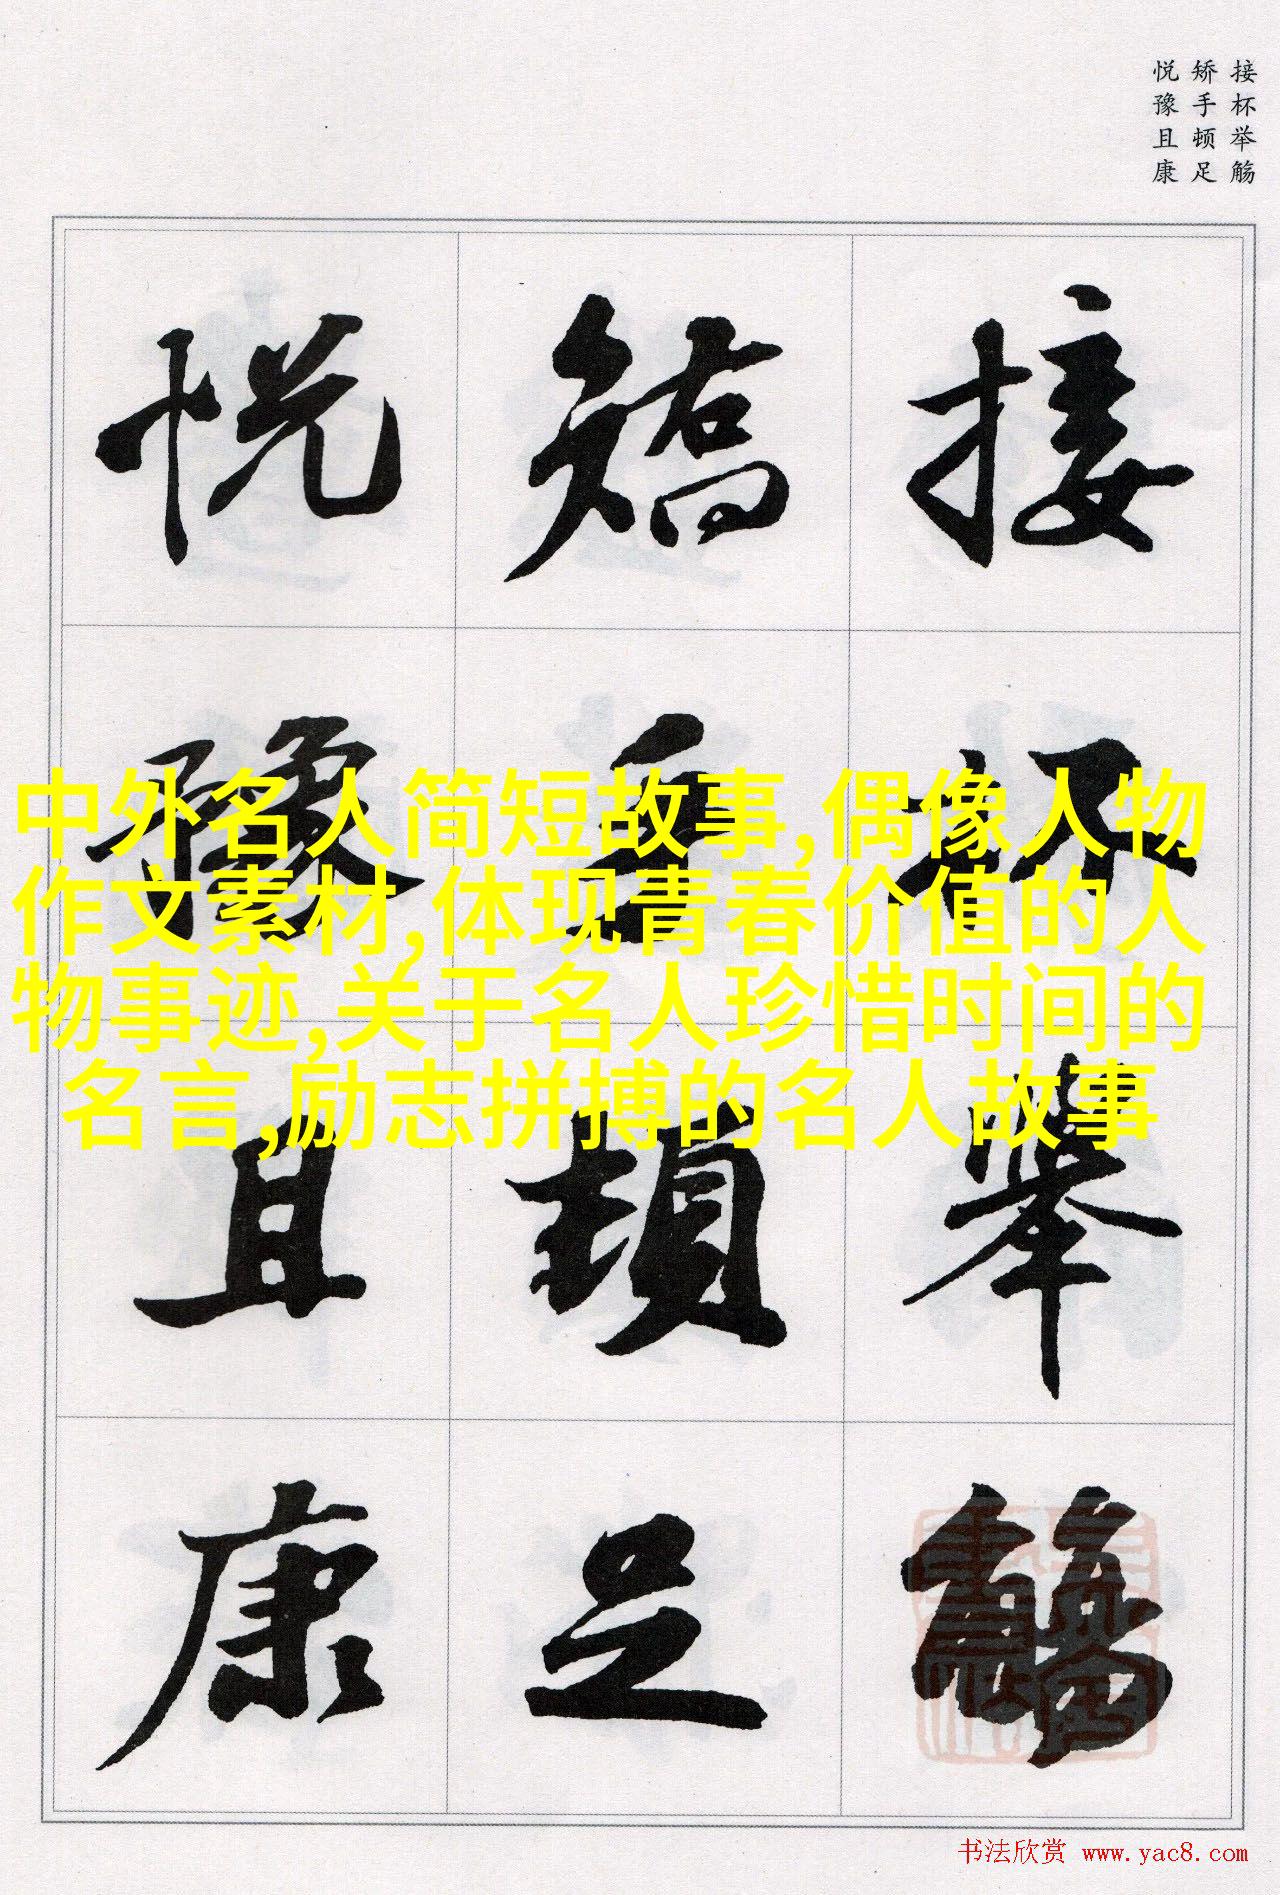 接杯举觞
矫手顿足
悦豫且康
接杯舉觴
矯手頓足
悦豫且康
中外名人简短故事,偶像人物
作文素材,体现青春价值的人
物事迹,关于名人珍惜时间的
名言,励志拼搏的名人故事
书法欣赏 www.yac8.com